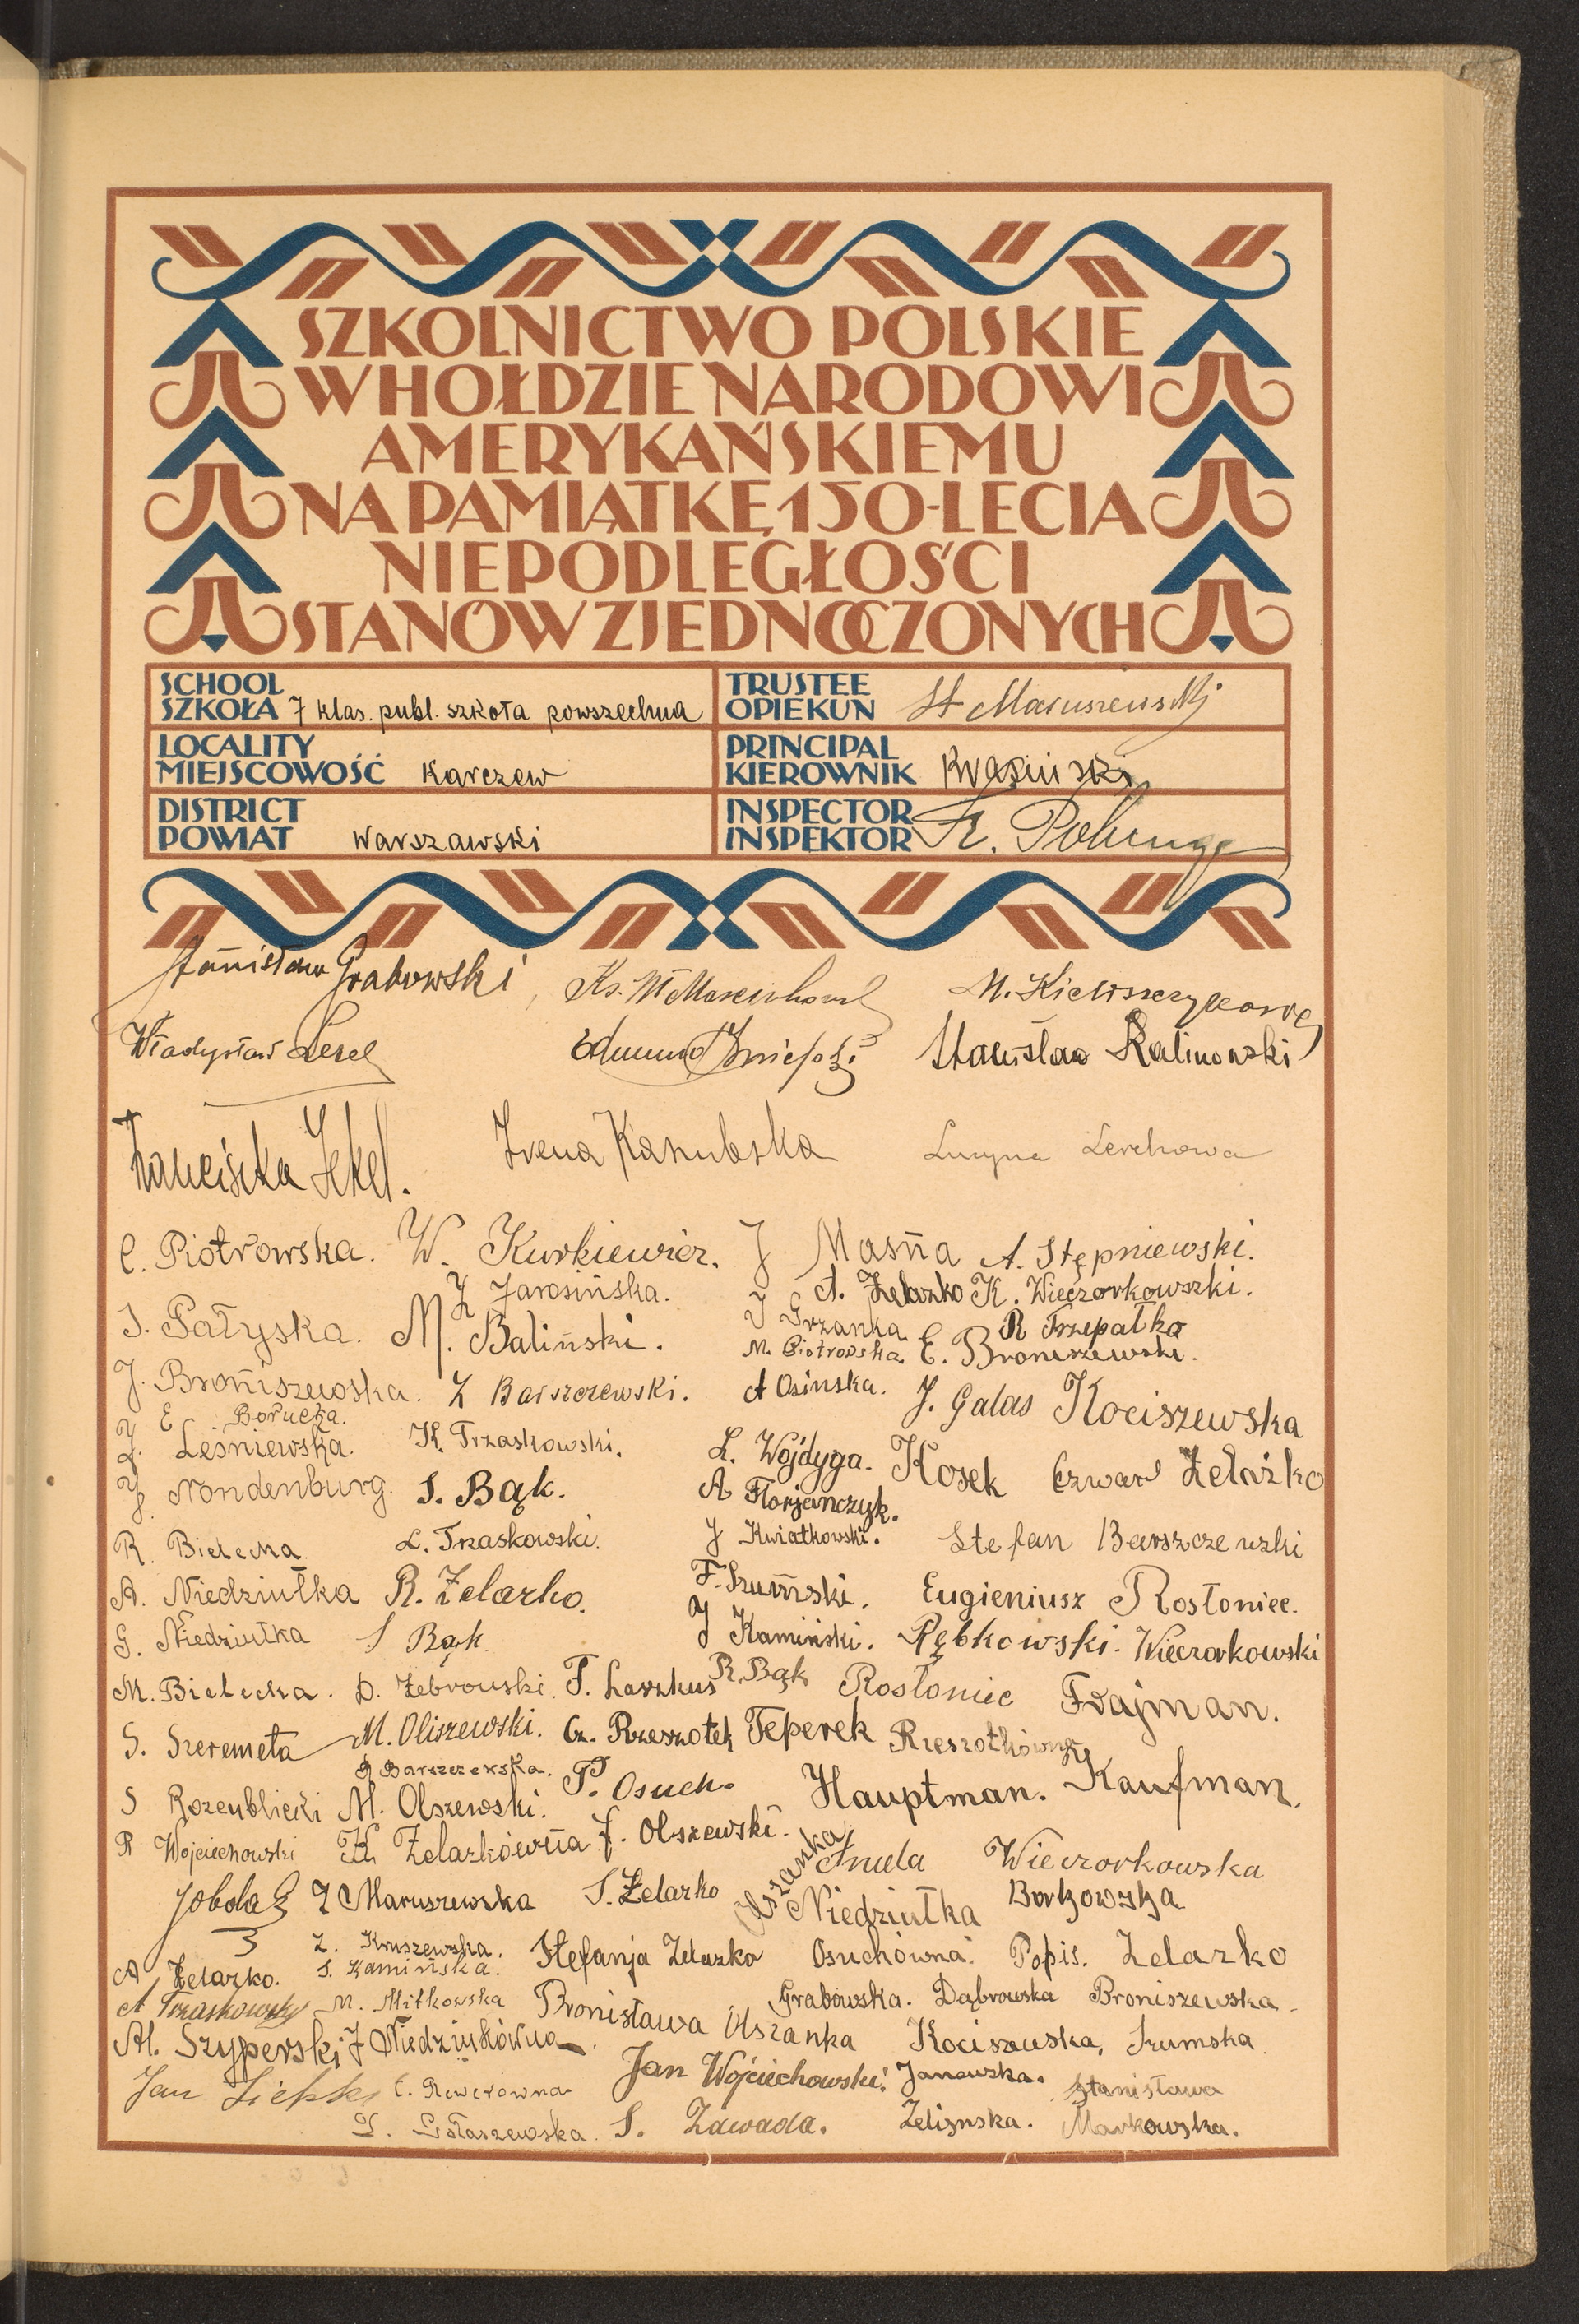 SZKOLNICTWO POLSKIE
W HOŁDZIE NARODOWI
AMERYKAŃSKIEMU
NA PAMIĄTKĘ 150-LECIA
NIEPODLEGŁOŚCI
STANÓW ZJEDNOCZONYCH
SCHOOL
SZKOŁA 7 klas. publ. szkoła powszechna
TRUSTEE
OPIEKUN St Maruszewski
LOCALITY
MIEJSCOWOŚĆ Karczew
PRINCIPAL
KIEROWNIK
DISTRICT
POWIAT Warszawski
INSPECTOR
INSPEKTOR
Stanisław Grabowski
Ks. M.
Władysław Stanisław Kalinowski
Franciszka Jekel. Irena Lucyna Lerchowa
C. Piotrowska. W. Kurkiewicz. J Masna A. Stępniewski.
Z Jarosińska. A. Żelazko K. Wieczorkowszki.
S. Pałyska. M. Baliński. J Grzanka R Trzepałka
M. Piotrowska. E. Broniszewski.
J. Broniszewska. Z Barszczewski. A Osinska. J. Galas Kociszewska
E Borucka.
Z. Leśniewska. K. Trzaskowski. L. Wojdyga. Kosek Czwarl Żelazko
J. Nondenburg. S. Bąk. A Florjańczyk.
R. Bielecka L. Trzaskowski. J Kwiatkowski. Stefan Barszczewzki
A. Niedziułka R. Żelazko. F. Szumski. Eugieniusz Rosłoniec.
G. Niedziułka S Bąk. J Kamiński. Rębkowski. Wieczorkowski
M. Bielecka. D. Żebrowski. T. Laszkus R. Bąk Rosłoniec Frajman.
S. Szeremeta M. Oliszewski. Cz. Rzeszotek Teperek Rzeszotkówna
Barszczewska.
S Rozenblicki M. Olszewski. P. Osuch. Hauptman. Kaufman.
R Wojciechowski K Żelazkówna J. Olszewski. Olszanka Snela Wieczorkowska
Z Maruszewska S. Żelazko Niedziułka Borkowska
Z. Kruszewska. Stefanja Żelazko Osuchówna. Popis. Żelazko
A Żelazko. S. Kamińska.
A Trzaskowski M. Mitkowska Grabowska. Dąbrowska Broniszewska.
Bronisława Olszanka
M. Szyperski J Niedziułkówna Kociszewska, Szumska.
Jan C. Rewerowna Jan Wojciechowski. Janowska. Stanisława
S. Gołaszewska. S. Zawada. Markowska.